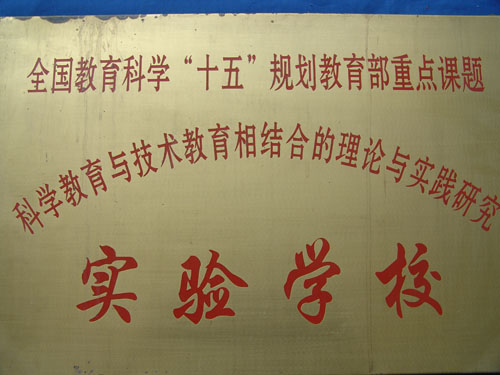 全国教育科学“十五”规划教育部重点课题
科学教育与技术教育相结合的理论与实践研究
实验学校